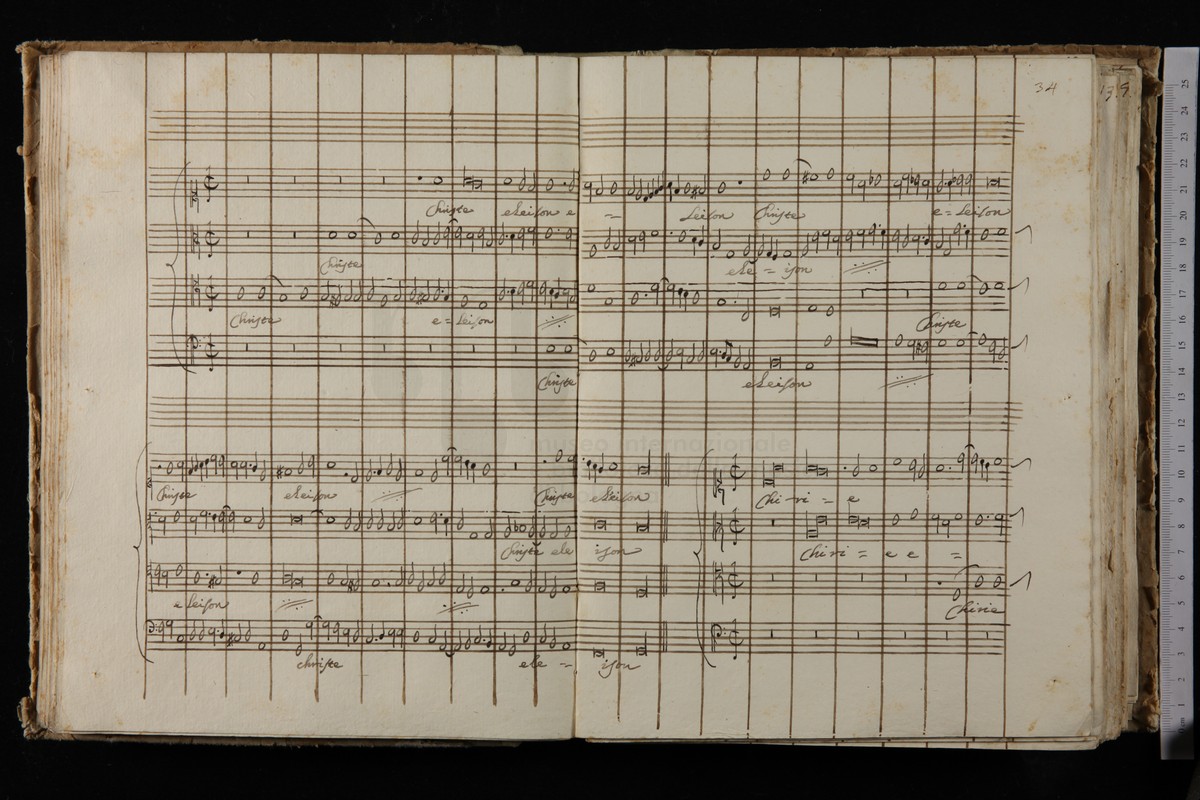 34
139.
Christe eleison e = leison Christe e = leison
Christe ele = ison
Christe e = leison Christe
Christe eleison
museo internazionale
Christe eleison Christe eleison Chi - ri = e
Christe ele ison Chiri = e e =
eleison Chirie
christe ele = ison